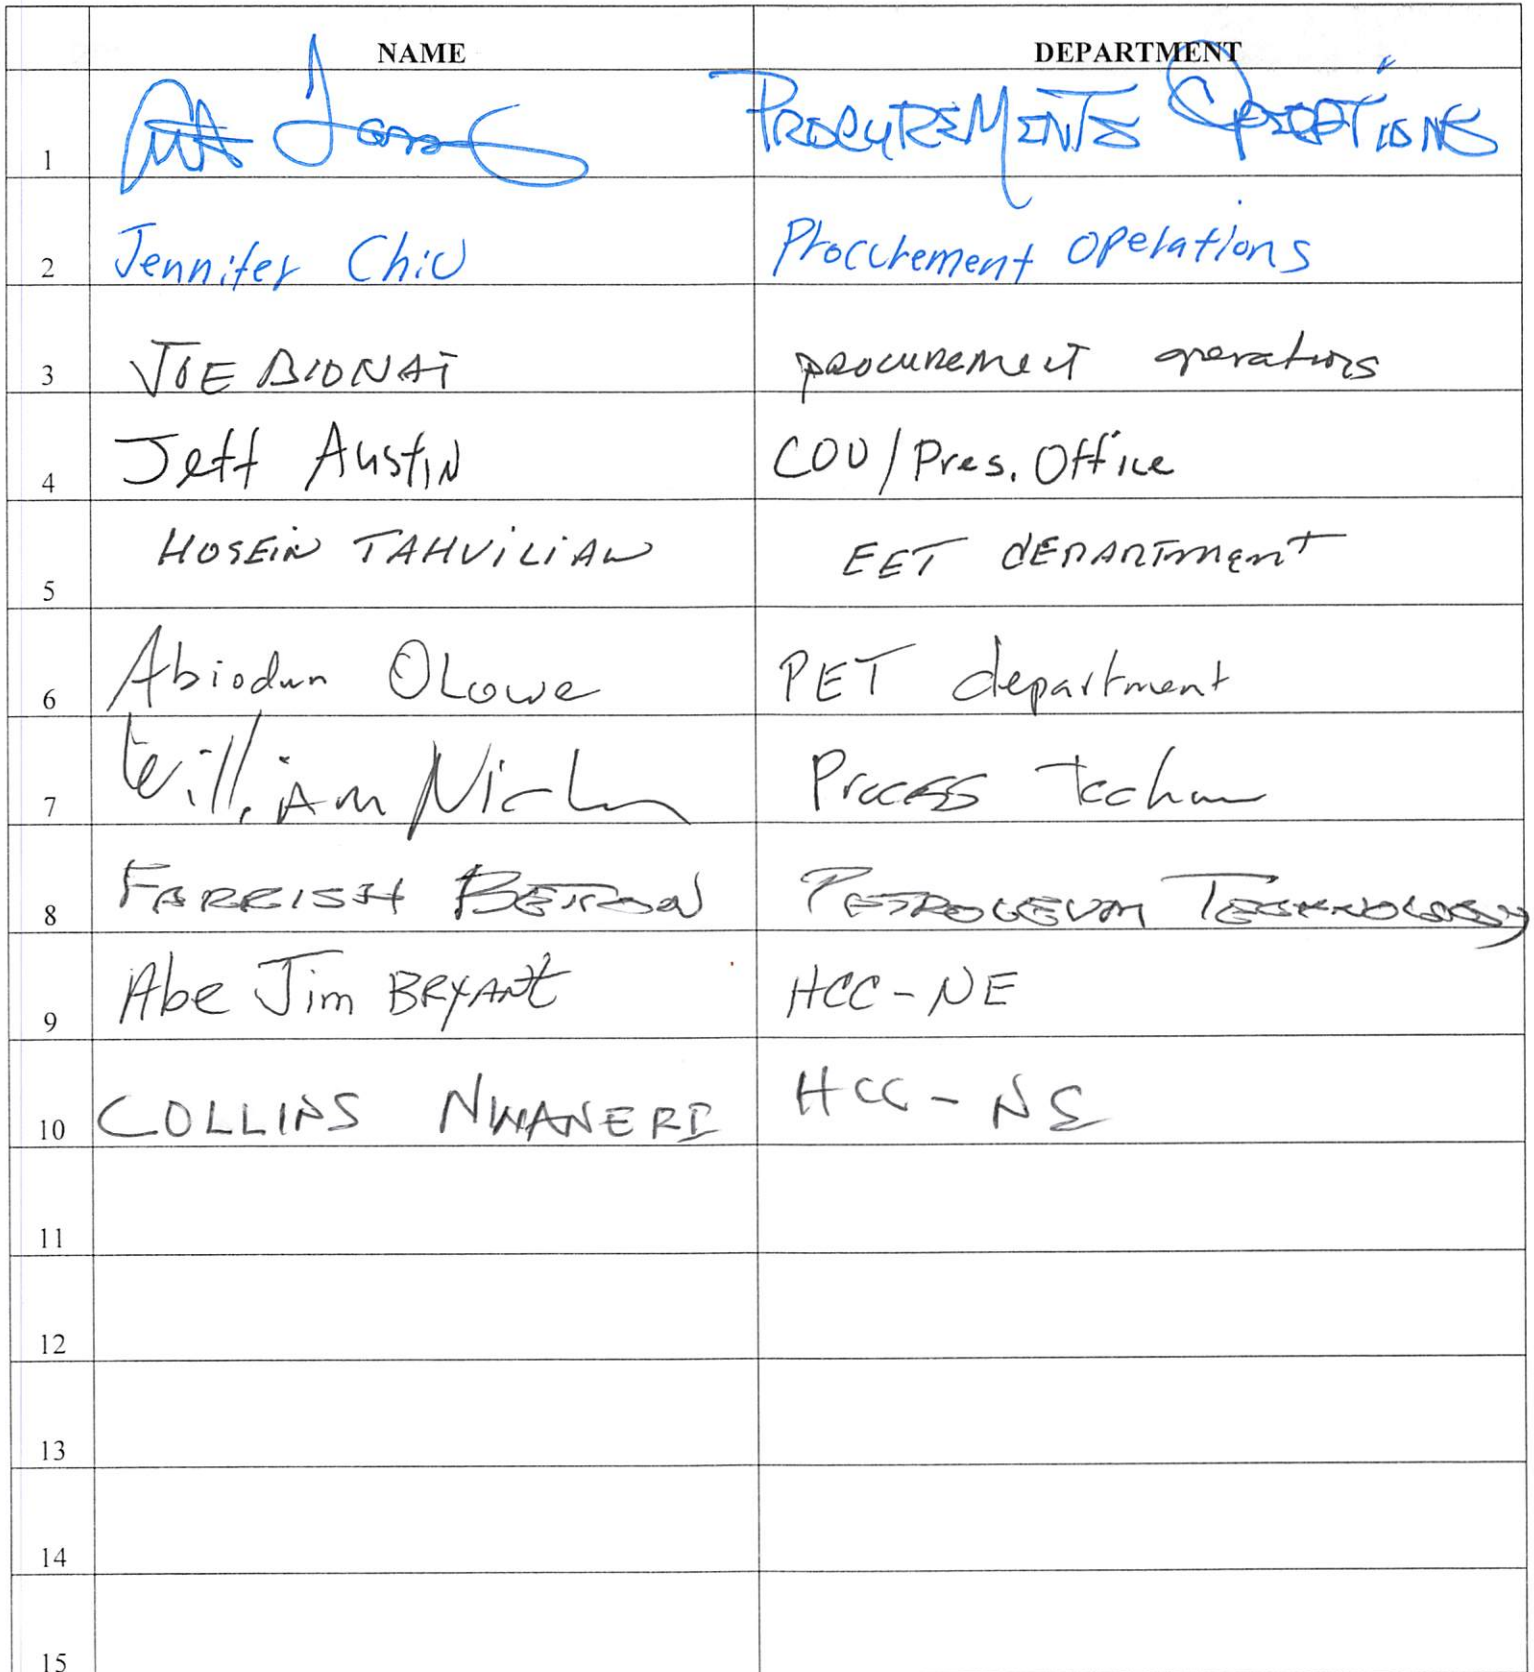 NAME DEPARTMENT
1 PROCUREMENTS OPERATIONS
2 Jennifer Chiu Procurement Operations
3 JOE BIONAT procurement operations
4 Jeff Austin COU/Pres. Office
5 HOSEIN TAHVILIAN EET DEPARTment
6 Abiodun OLowe PET department
7 William Process
8 FARRISH PETROLEUM TECHNOLOGY
9 Abe Jim BRYANt HCC-NE
10 COLLINS NWANERI HCC-NE
11
12
13
14
15